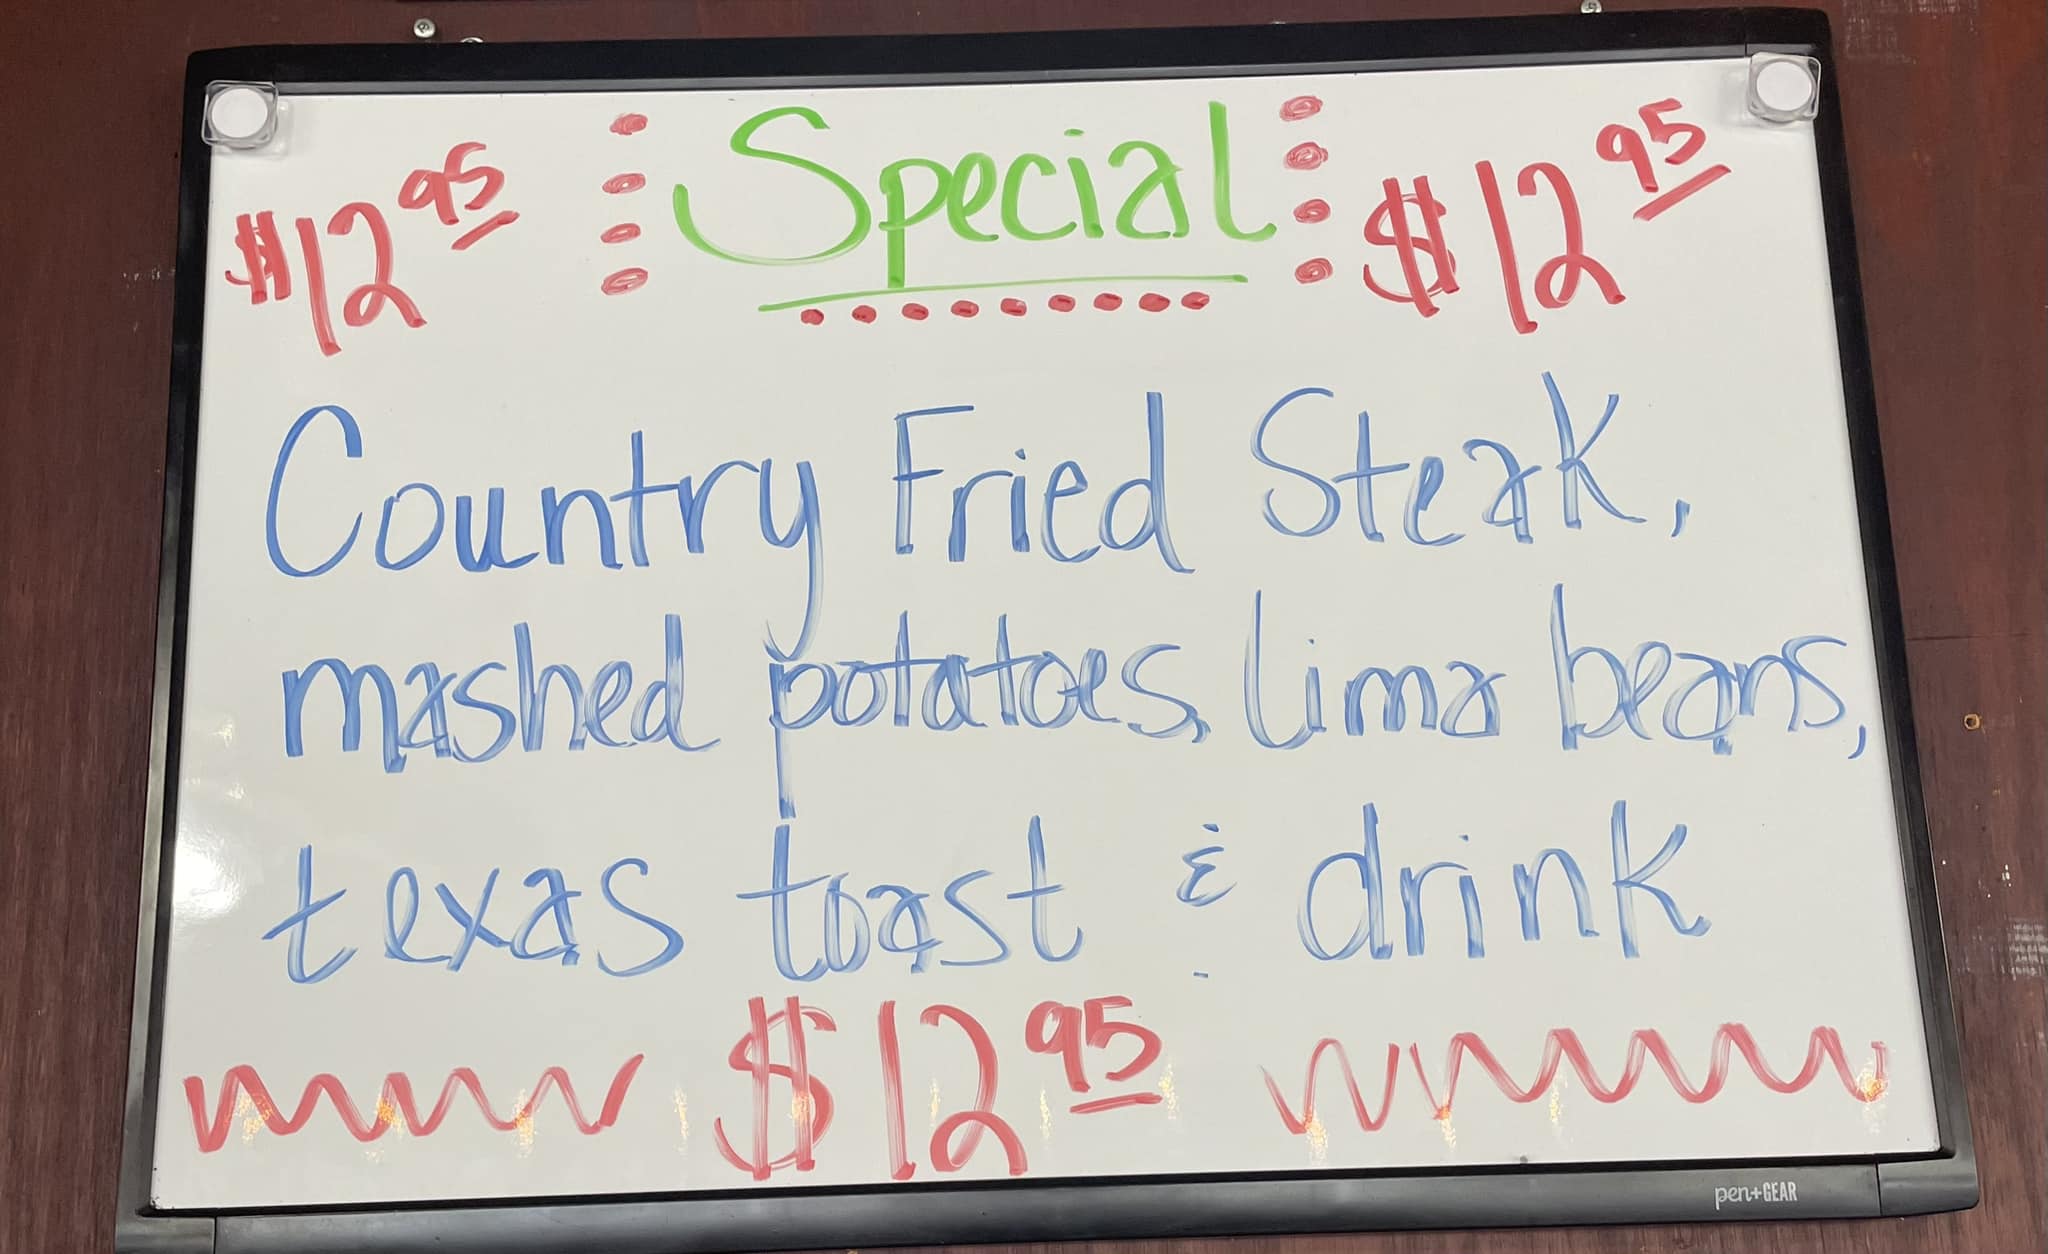 $12 95 Special $12 95
Country Fried Steak,
mashed potatoes, lima beans,
texas toast & drink
$12 95
pen+GEAR